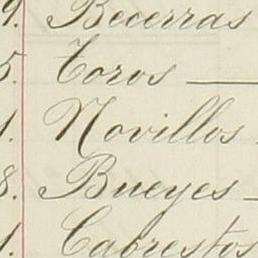 9. Becerras
5. Toros —
1. Novillos
8. Bueyes —
1. Cabrestos